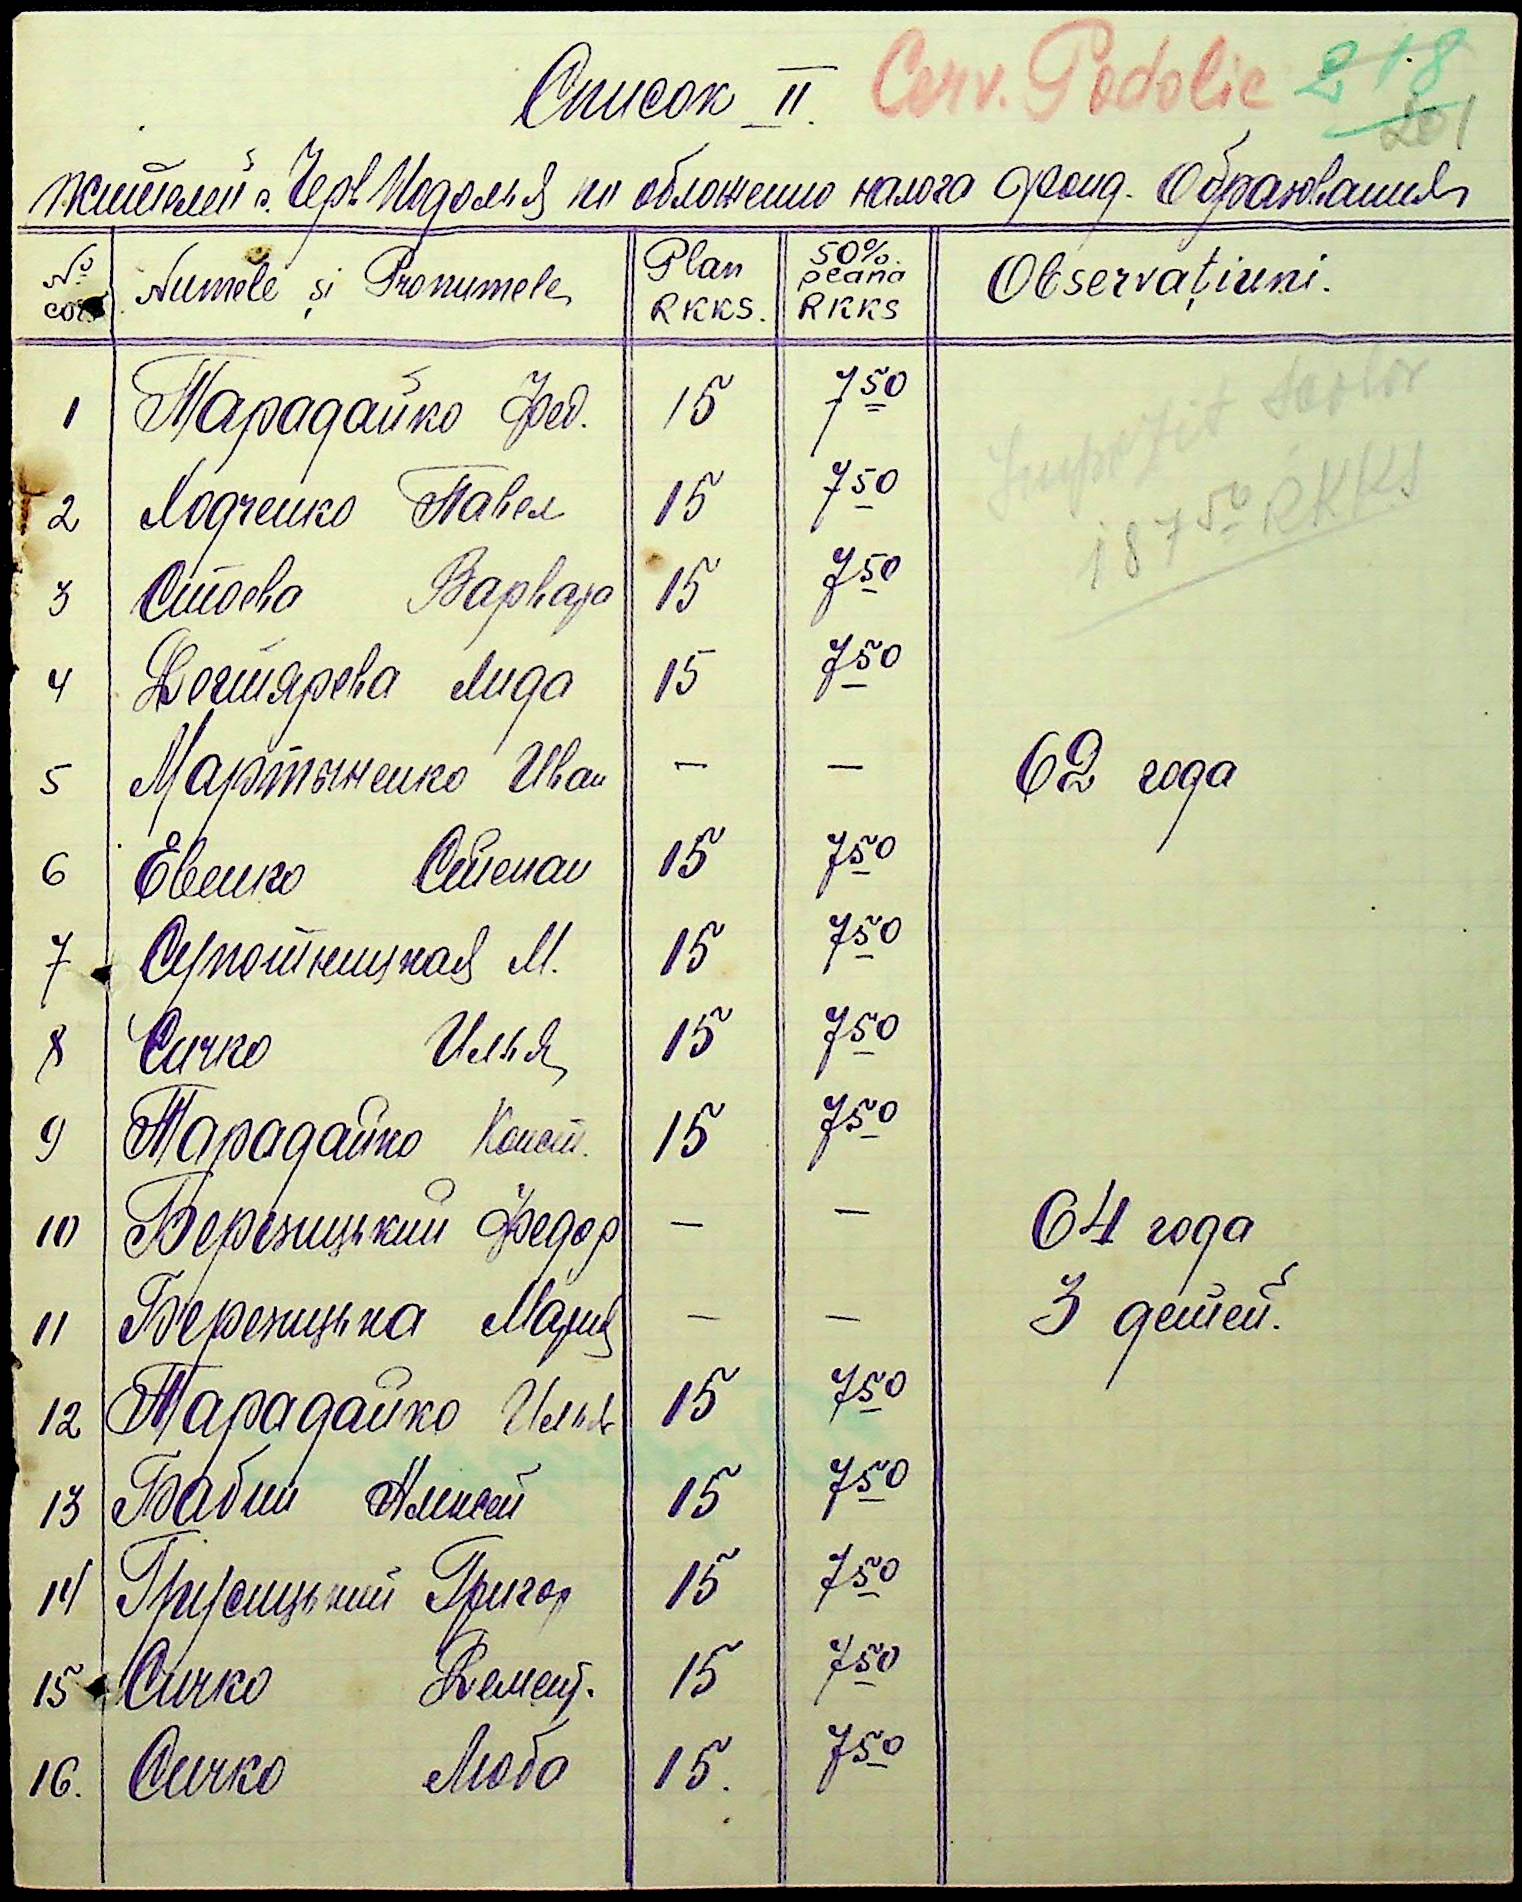 Список II. Cerv. Podolic 218
201
жителей с. Черв Подолья по обложению налога фонд. Образования
№ crt. Numele și Pronumele Plan RKKS. 50% plana RKKS Observațiuni.
1 Тарадайко Фед. 15 7 50
Impozit scolar
2 Лодченко Павел 15 7 50
187 50 RKKS
3 Стоева Варвара 15 7 50
4 Дегтярева Лида 15 7 50
5 Мартыненко Иван — — 62 года
6 Евенко Степан 15 7 50
7 Супотницкая М. 15 7 50
8 Сичко Илья 15 7 50
9 Тарадайко Конст. 15 7 50
10 Березицький Федор — — 64 года
11 Березицька Мария — — 3 детей.
12 Тарадайко Илья 15 7 50
13 Бабии Алексей 15 7 50
14 Григор 15 7 50
15 Сичко Демент. 15 7 50
16. Сичко Люба 15. 7 50